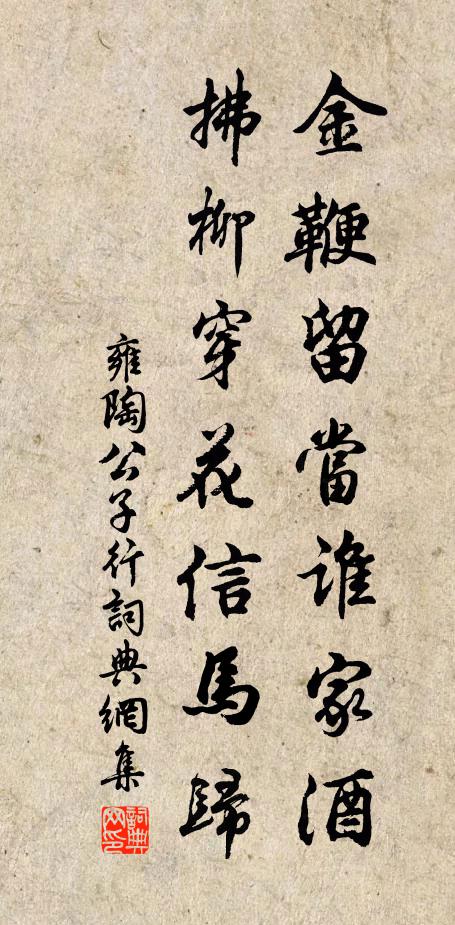 金鞭留當誰家酒
拂柳穿花信馬歸
雍陶公子行詞典網集
詞典网印